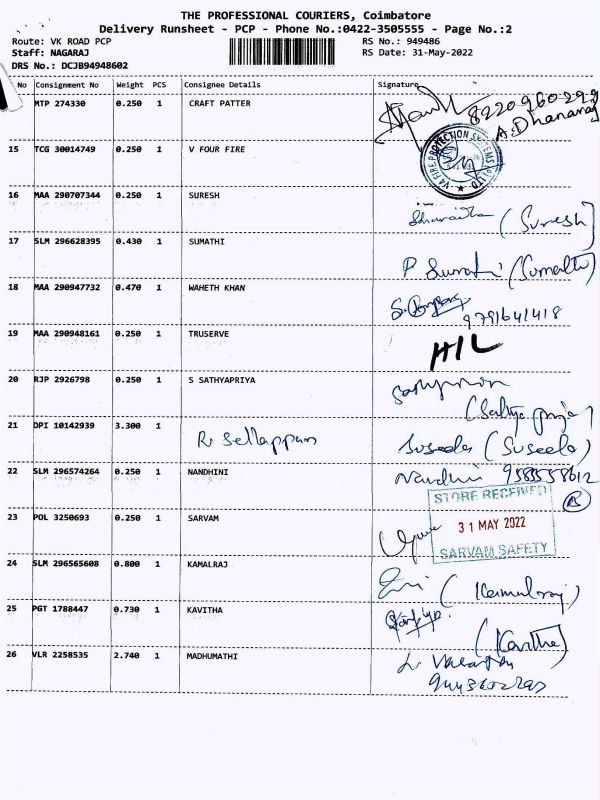 THE PROFESSIONAL COURIERS, Coimbatore
Delivery Runsheet - PCP - Phone No.:0422-3505555 - Page No.:2
Route: VK ROAD PCP RS No.: 949486
Staff: NAGARAJ RS Date: 31-May-2022
DRS No.: DCJB94948602
No Consignment No Weight PCS Consignee Details Signature
MTP 274330 0.250 1 CRAFT PATTER
8220960299
A.Dhanaraj
15 TCG 30014749 0.250 1 V FOUR FIRE
V4 FIRE PROTECTION SYSTEMS
16 MAA 290707344 0.250 1 SURESH
(Suresh)
17 SLM 296628395 0.430 1 SUMATHI
P Sumathi (Sumathi)
18 MAA 290947732 0.470 1 WAHETH KHAN
9791641418
19 MAA 290948161 0.250 1 TRUSERVE
H/L
20 RJP 2926798 0.250 1 S SATHYAPRIYA
(Sathya priya)
21 DPI 10142939 3.300 1 R. Sellappan Suseela (Suseela)
22 SLM 296574264 0.250 1 NANDHINI Nandhini 9585558612
STORE RECEIVED
23 POL 3250693 0.250 1 SARVAM 31 MAY 2022
SARVAM SAFETY
24 SLM 296565608 0.800 1 KAMALRAJ
(Kamalraj)
25 PGT 1788447 0.730 1 KAVITHA
(Kavitha)
26 VLR 2258535 2.740 1 MADHUMATHI